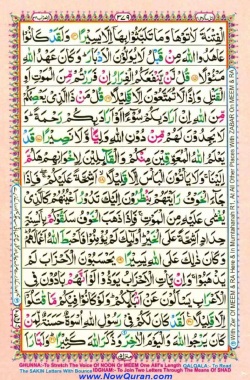 ۳۷۹
الْفِتْنَةَ لَاٰتَوْهَا وَمَا تَلَبَّثُوْا بِهَاۤ اِلَّا يَسِيْرًا وَلَقَدْ كَانُوْا
عَاهَدُوا اللّٰهَ مِنْ قَبْلُ لَا يُوَلُّوْنَ الْاَدْبَارَ وَكَانَ عَهْدُ اللّٰهِ
مَسْئُوْلًا قُلْ لَّنْ يَّنْفَعَكُمُ الْفِرَارُ اِنْ فَرَرْتُمْ مِّنَ الْمَوْتِ اَوِ
الْقَتْلِ وَاِذًا لَّا تُمَتَّعُوْنَ اِلَّا قَلِيْلًا قُلْ مَنْ ذَا الَّذِيْ يَعْصِمُكُمْ
مِّنَ اللّٰهِ اِنْ اَرَادَ بِكُمْ سُوْٓءًا اَوْ اَرَادَ بِكُمْ رَحْمَةً وَلَا
يَجِدُوْنَ لَهُمْ مِّنْ دُوْنِ اللّٰهِ وَلِيًّا وَّلَا نَصِيْرًا قَدْ
يَعْلَمُ اللّٰهُ الْمُعَوِّقِيْنَ مِنْكُمْ وَالْقَآئِلِيْنَ لِاِخْوَانِهِمْ هَلُمَّ
اِلَيْنَا وَلَا يَاْتُوْنَ الْبَاْسَ اِلَّا قَلِيْلًا اَشِحَّةً عَلَيْكُمْ فَاِذَا
جَآءَ الْخَوْفُ رَاَيْتَهُمْ يَنْظُرُوْنَ اِلَيْكَ تَدُوْرُ اَعْيُنُهُمْ كَالَّذِيْ
يُغْشٰى عَلَيْهِ مِنَ الْمَوْتِ فَاِذَا ذَهَبَ الْخَوْفُ سَلَقُوْكُمْ بِاَلْسِنَةٍ
حِدَادٍ اَشِحَّةً عَلَى الْخَيْرِ اُولٰٓئِكَ لَمْ يُؤْمِنُوْا فَاَحْبَطَ اللّٰهُ اَعْمَالَهُمْ
وَكَانَ ذٰلِكَ عَلَى اللّٰهِ يَسِيْرًا يَحْسَبُوْنَ الْاَحْزَابَ لَمْ
يَذْهَبُوْا وَاِنْ يَّاْتِ الْاَحْزَابُ يَوَدُّوْا لَوْ اَنَّهُمْ بَادُوْنَ فِي
الْاَعْرَابِ يَسْاَلُوْنَ عَنْ اَنْۢبَآئِكُمْ وَلَوْ كَانُوْا فِيْكُمْ مَّا قٰتَلُوْۤا
اِلَّا قَلِيْلًا لَقَدْ كَانَ لَكُمْ فِيْ رَسُوْلِ اللّٰهِ اُسْوَةٌ حَسَنَةٌ لِّمَنْ
كَانَ يَرْجُوا اللّٰهَ وَالْيَوْمَ الْاٰخِرَ وَذَكَرَ اللّٰهَ كَثِيْرًا وَلَمَّا
GHUNNA:-To Stretch The Voice Of NOON Or MEEM One Alif's Length QALQALA:- To Read
The SAKIN Letters With Bounce IDGHAM:- To Join Two Letters Through The Means Of SHAD
www.NowQuran.com